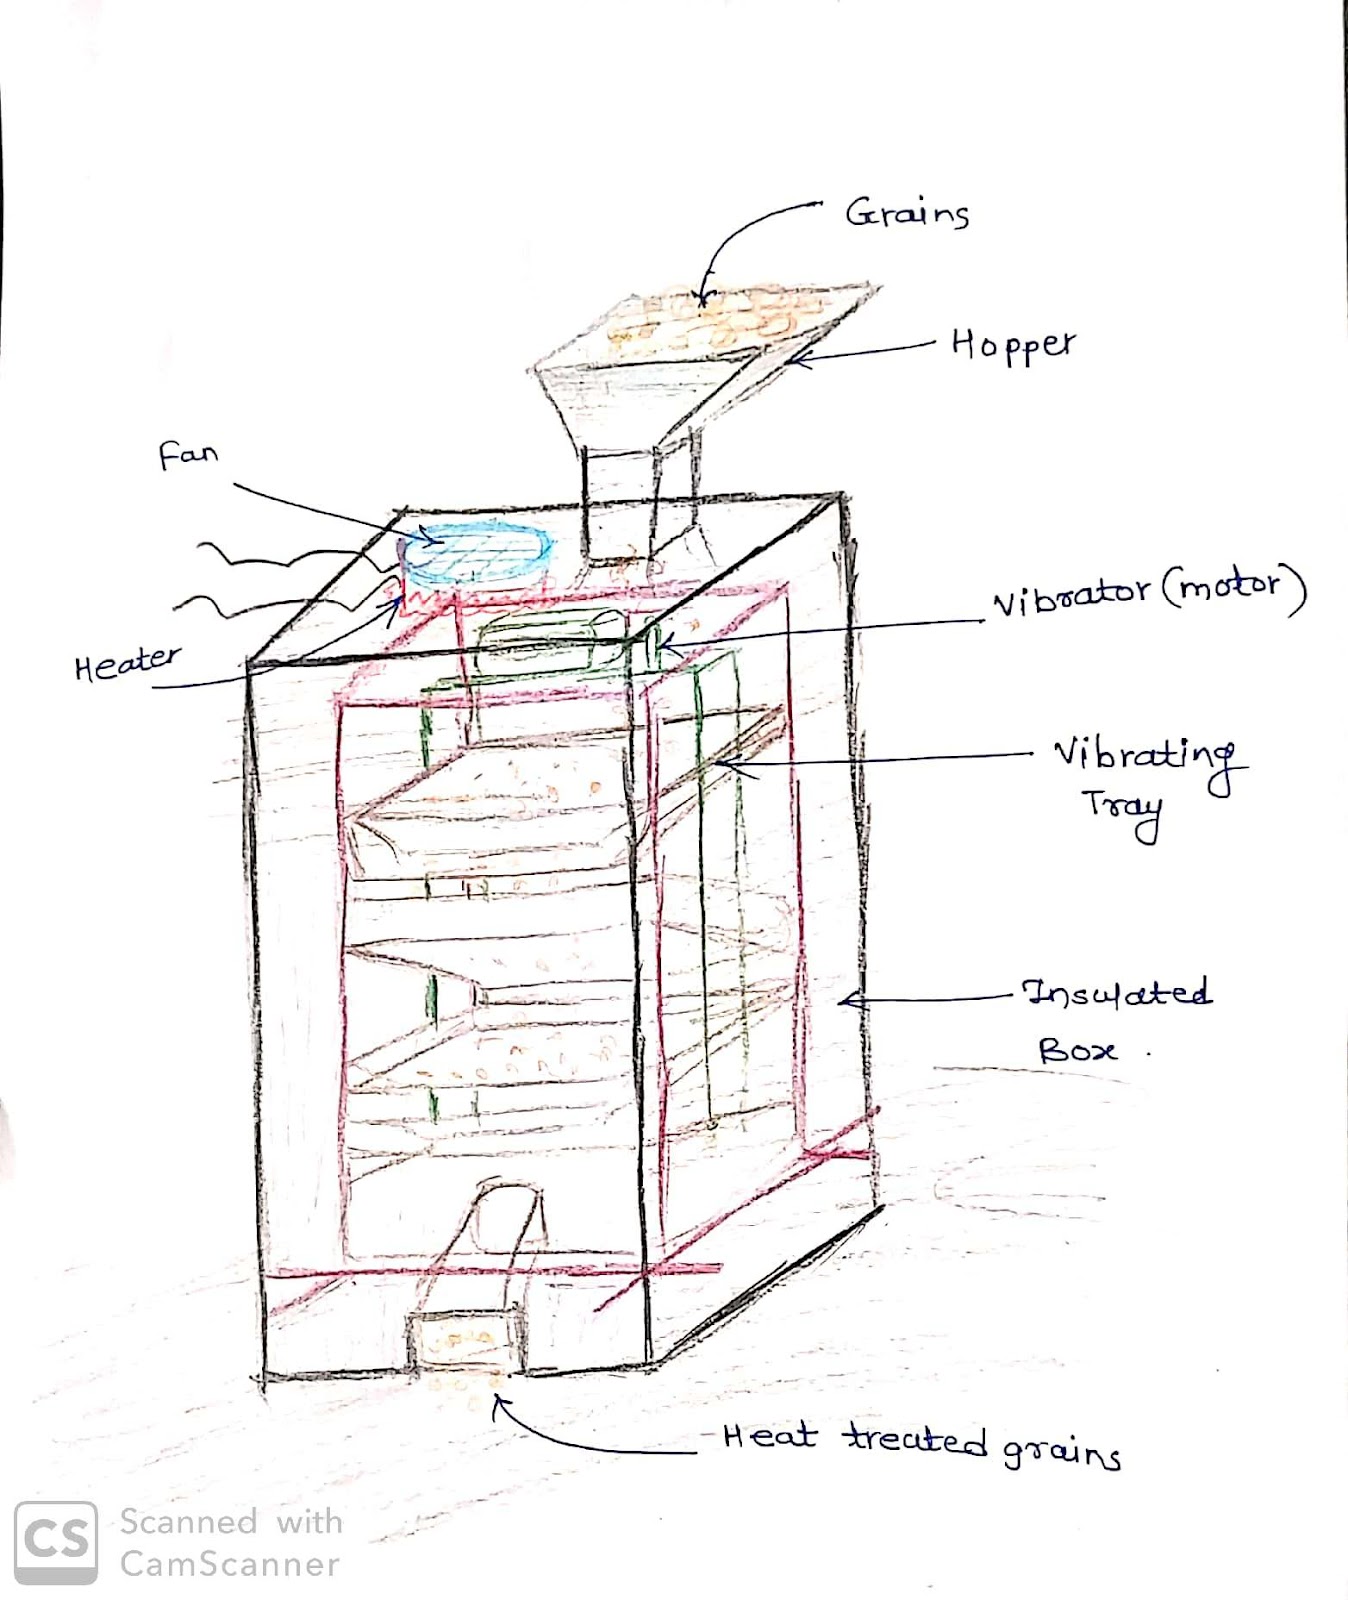 Grains
Hopper
Fan
Vibrator (motor)
Heater
Vibrating
Tray
Insulated
Box .
Heat treated grains
CS
Scanned with
CamScanner